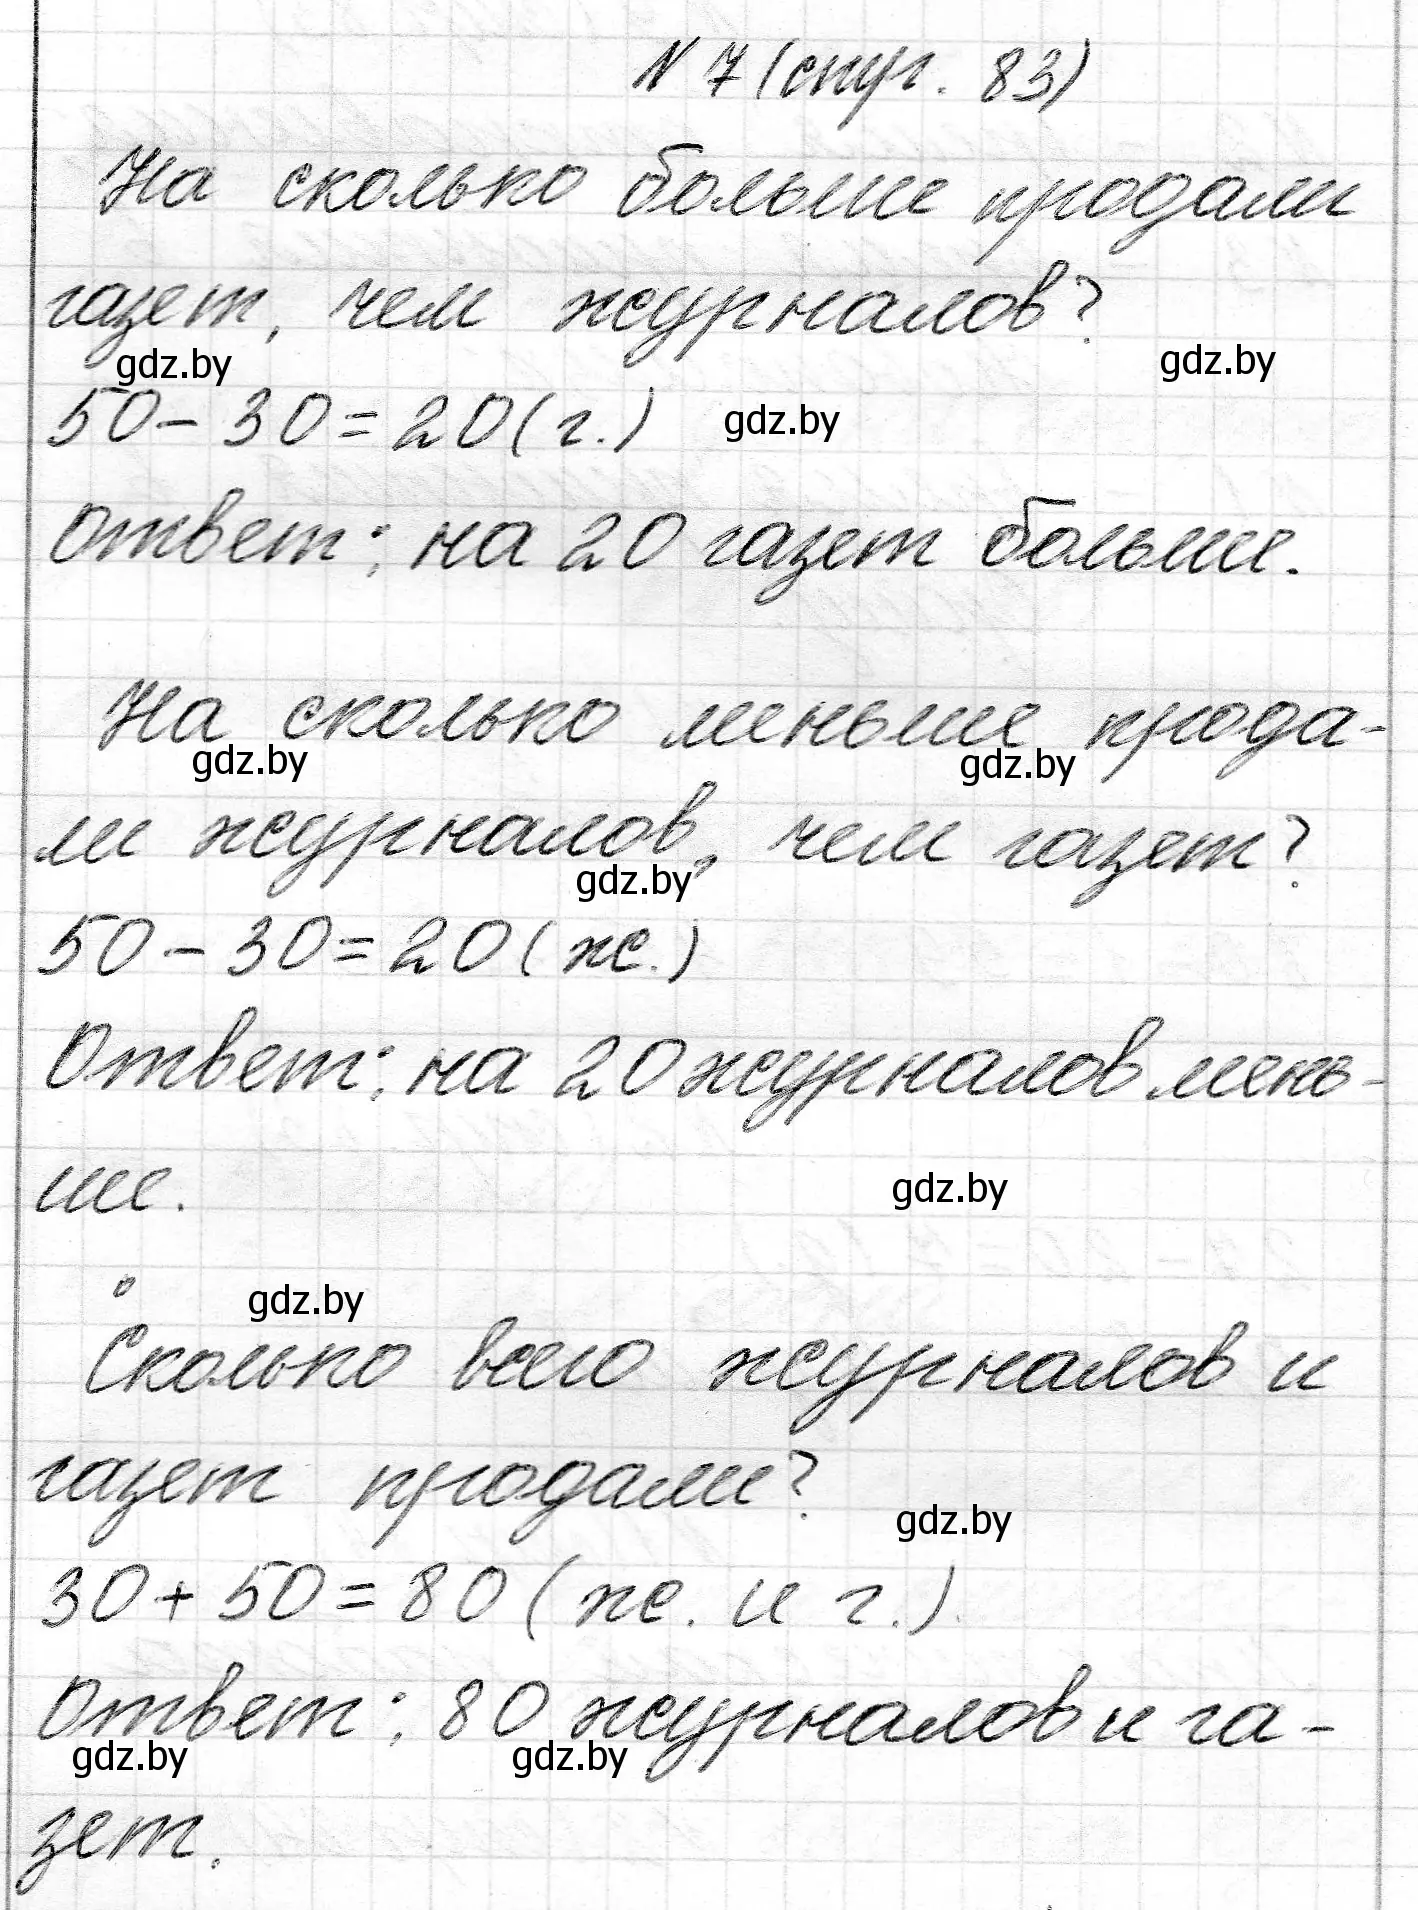 N 7 (стр. 83)
На сколько больше продали
газет, чем журналов?
gdz.by gdz.by
50 - 30 = 20 (г.) gdz.by
Ответ: на 20 газет больше.
На сколько меньше прода-
gdz.by gdz.by
ли журналов, чем газет?
gdz.by
50 - 30 = 20 (ж.)
Ответ: на 20 журналов мень-
ше. gdz.by
gdz.by
Сколько всего журналов и
газет продали?
gdz.by
30 + 50 = 80 (ж. и г.).
Ответ: 80 журналов и га-
gdz.by gdz.by
зет.